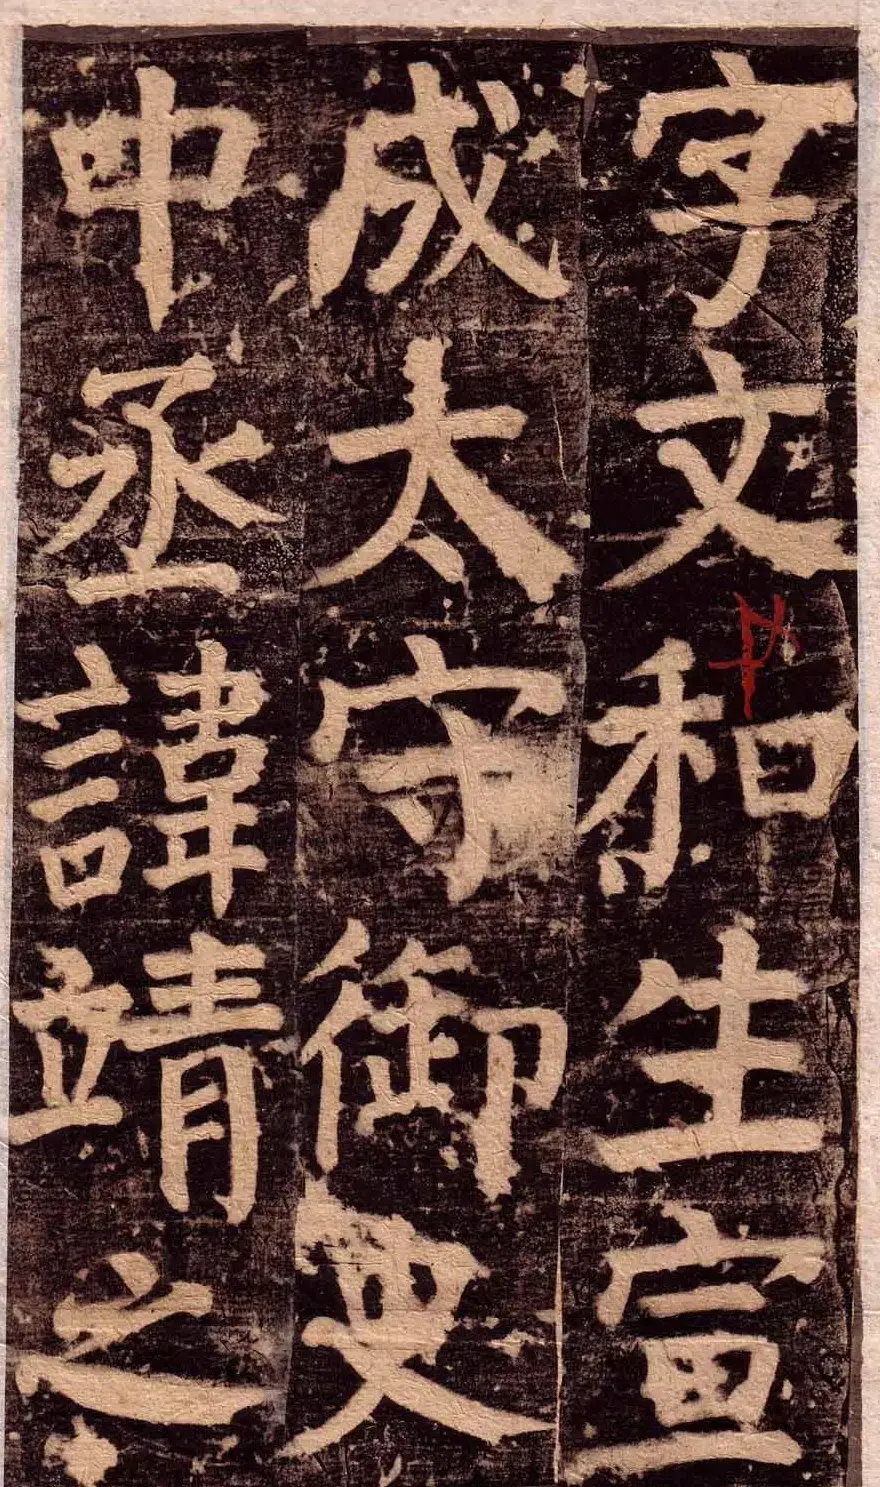 字文和生宣
成太守御史
中丞諱靖之